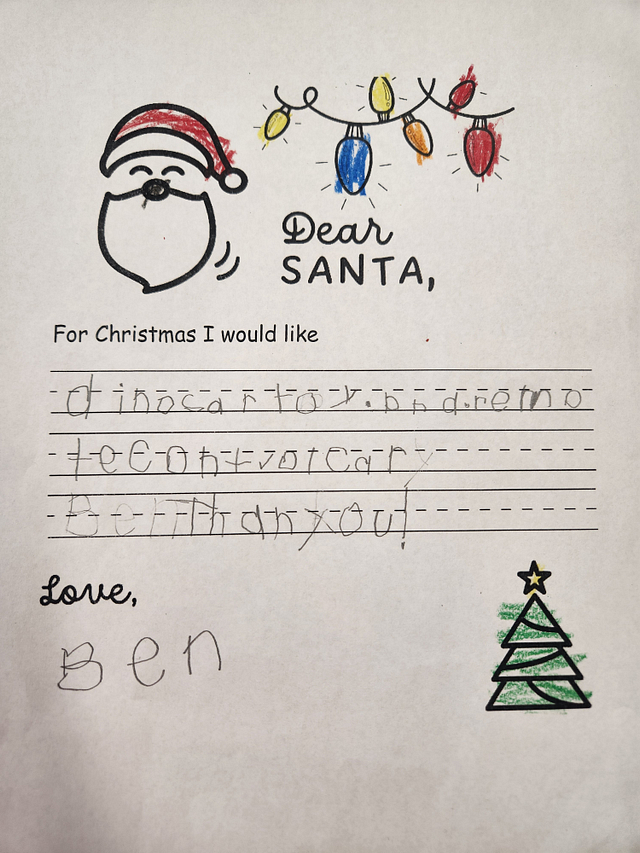 Dear
SANTA,
For Christmas I would like
dinocartoy.and.remo
tecontrolcar
Thanyou!
Love,
Ben